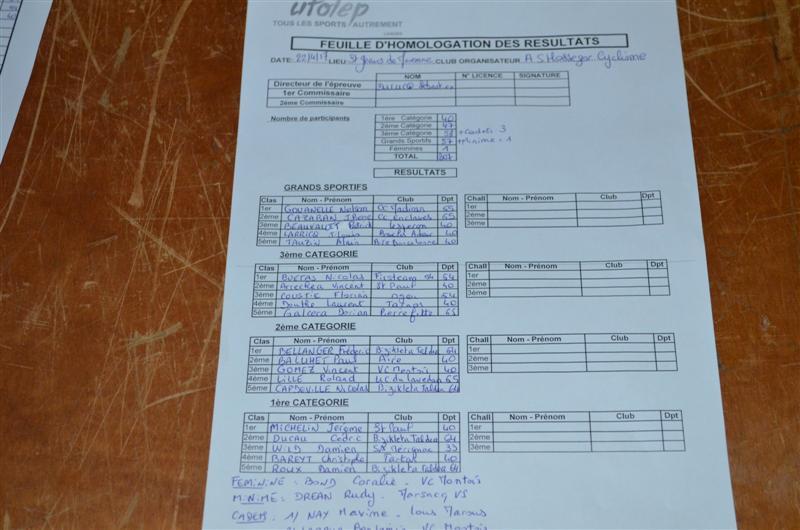 ufolep
TOUS LES SPORTS AUTREMENT
LANDES
FEUILLE D'HOMOLOGATION DES RESULTATS
DATE: 22/4/17 LIEU: St Jours de Marenne CLUB ORGANISATEUR: A S Hossegor Cyclisme
NOM N° LICENCE SIGNATURE
Directeur de l'épreuve
1er Commissaire
2ème Commissaire
Nombre de participants
1ère Catégorie 40
2ème Catégorie 47
3ème Catégorie + Cadets 3
Grands Sportifs 57 + Minime - 1
Féminines 1
TOTAL 207
RESULTATS
GRANDS SPORTIFS
Clas Nom - Prénom Club Dpt Chall Nom - Prénom Club Dpt
1er GOUANELLE Nathan CC Madiran 65 1er
2ème CAZABAN Cc Enclaves 65 2ème
3ème BEAUVALLET Patrick Lesperon 40 3ème
4ème LARRICQ J Louis Adour 40
5ème TAUZIN Alain 40
3ème CATEGORIE
Clas Nom - Prénom Club Dpt Chall Nom - Prénom Club Dpt
1er Nicolas Firsteam 64 64 1er
2ème Arrechea Vincent St Paul 40 2ème
3ème COUSTIE Florian 64 3ème
4ème Douthe Laurent Tarnos 40
5ème Galcera Dorian Pierrefitte 65
2ème CATEGORIE
Clas Nom - Prénom Club Dpt Chall Nom - Prénom Club Dpt
1er BELLANGER Frédéric Bizikleta Taldea 64 1er
2ème BALUHET Paul Aire 40 2ème
3ème GOMEZ Vincent VC Montois 40 3ème
4ème LILLE Roland UC du Lavedan 65
5ème CAPDEVILLE Nicolas Bizikleta Taldea 64
1ère CATEGORIE
Clas Nom - Prénom Club Dpt Chall Nom - Prénom Club Dpt
1er MICHELIN Jerome St Paul 40 1er
2ème DUCAU Cedric Bizikleta Taldea 64 2ème
3ème WILD Damien SA Mérignac 33 3ème
4ème BAREYT Christophe Tartas 40
5ème ROUX Damien Bizikleta Taldea 64
FEMININE : BOND Coralie - VC Montois
MINIME : DREAN Rudy - Marsacq VS
CADETS : 1/ NAY Maxime - Lous Marous
VC Montois